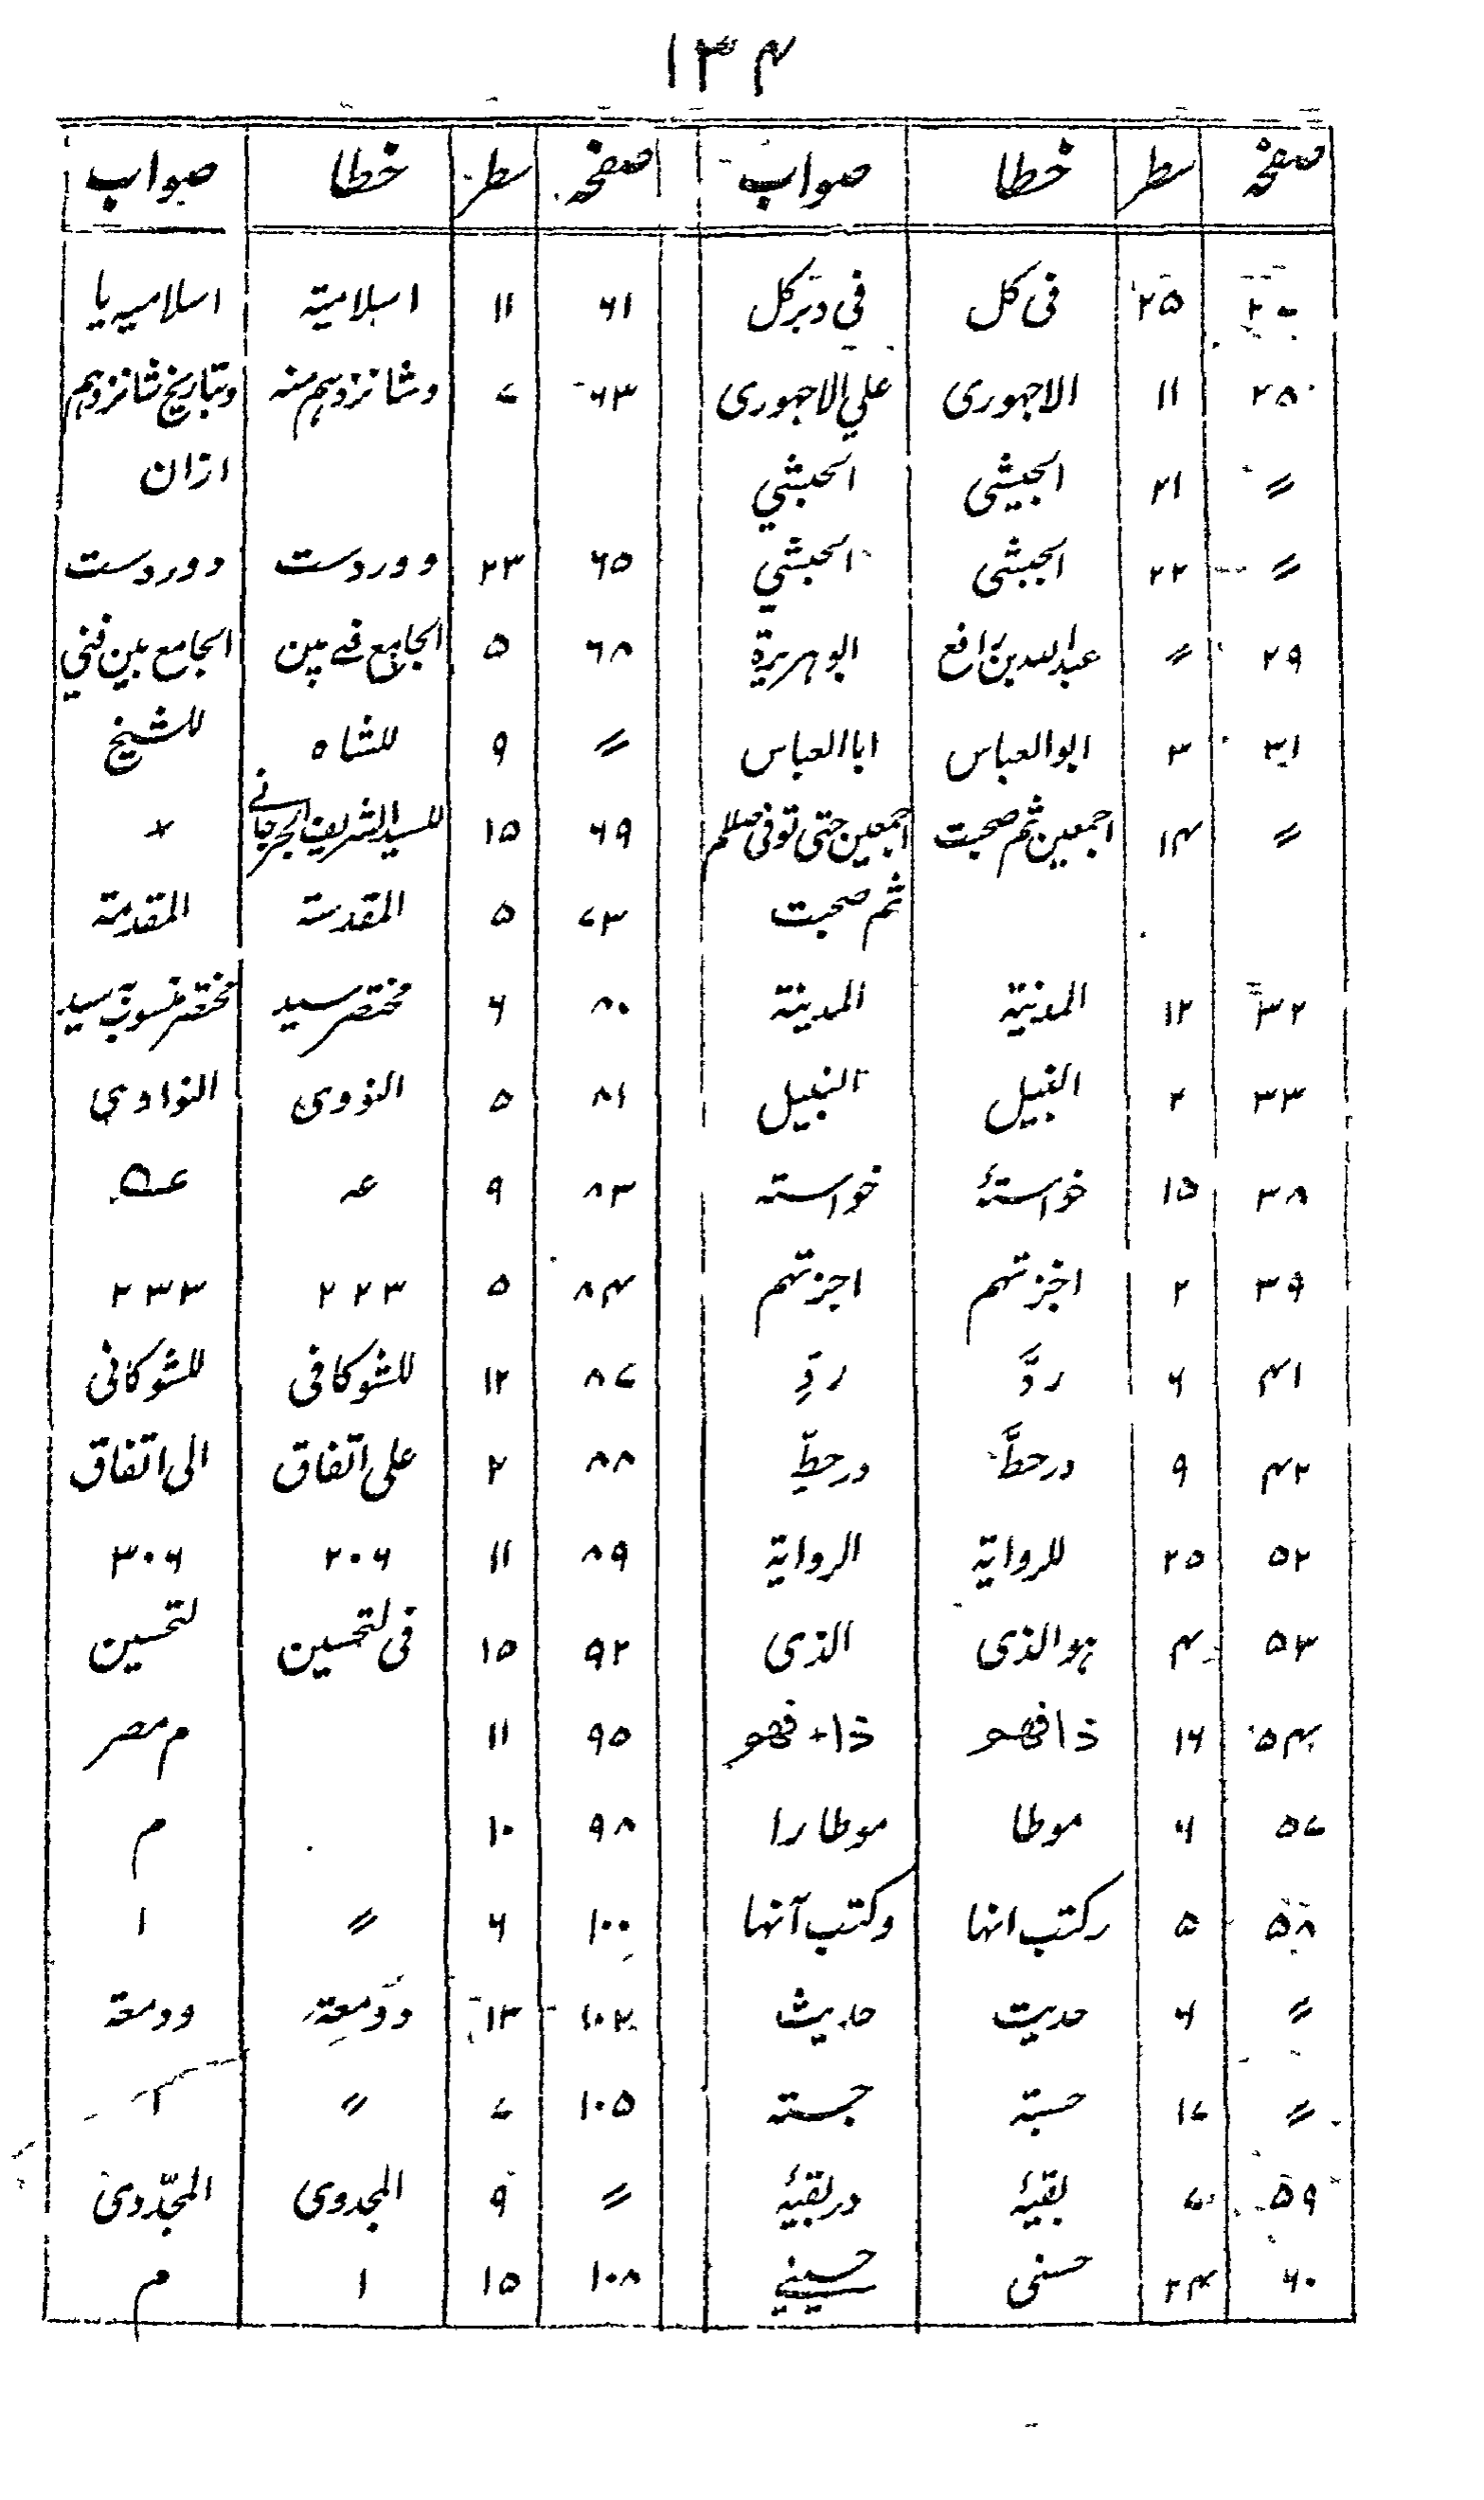 ۱۳۴
صفحہ سطر خطا صواب صفحہ سطر خطا صواب
۲۵ فی کل فی دبر کل ۶۱ ۱۱ اسلامیة اسلامیہ یا
۲۸ ۱۱ الاجہوری علي الاجہوری ۶۳ ۷ وشانزدہم منہ وبتاریخ شانزدہم
ازان
〃 ۲۱ الجیشی الحبشي
〃 ۲۲ الجبشی الحبشي ۶۵ ۲۳ وورد ست دورد ست
۲۹ 〃 عبد اللہ بن رافع ابو ہریرة ۶۸ ۵ الجامع فے بین الجامع بین فني
۳۱ ۳ ابو العباس ابا العباس 〃 ۹ للشاہ للشیخ
〃 ۱۴ اجمعین ثم صحبت اجمعین حتی توفی صللم ۶۹ ۱۵ للسید الشریف الجرجانے ×
ثم صحبت ۷۳ ۵ المقدسة المقدمة
۳۲ ۱۲ المدنیة المدینة ۸۰ ۶ مختصر سید مختصر منسوب بہ سید
۳۳ ۲ النبیل ۸۱ ۵ النووی النواوي
۳۸ ۱۵ خواستۂ خواستہ ۸۳ ۹ عہ
۳۹ ۲ اخزتہم اجزتہم ۸۴ ۵ ۲۲۳ ۲۳۳
۴۱ ۶ ردَّ ردِّ ۸۷ ۱۲ للشوکافی للشوکانی
۴۲ ۹ درحطَّ درحطِّ ۸۸ ۲ علی اتفاق الی اتفاق
۵۲ ۲۵ للروایة الروایة ۸۹ ۱۱ ۲۰۶ ۳۰۶
۵۳ ۴ ہو الذی الذی ۹۲ ۱۵ فی لتحسین لتحسین
۵۴ ۱۶ ذا فھو ذا+فھو ۹۵ ۱۱ م مصر
۵۷ ۶ موطا موطا را ۹۸ ۱۰ م
۵۸ ۵ رکتب انہا وکتب آنہا ۱۰۰ ۶ 〃 ا
〃 ۶ حدیت حدیث ۱۰۲ ۱۳ وومعة وومعة
〃 ۱۷ حستہ جستہ ۱۰۵ ۷ 〃 ا
۵۹ ۷ بقیۂ دربقیۂ 〃 ۹ المجدوی المجدّدی
۶۰ ۲۴ حسنی حسینی ۱۰۸ ۱۵ ا م